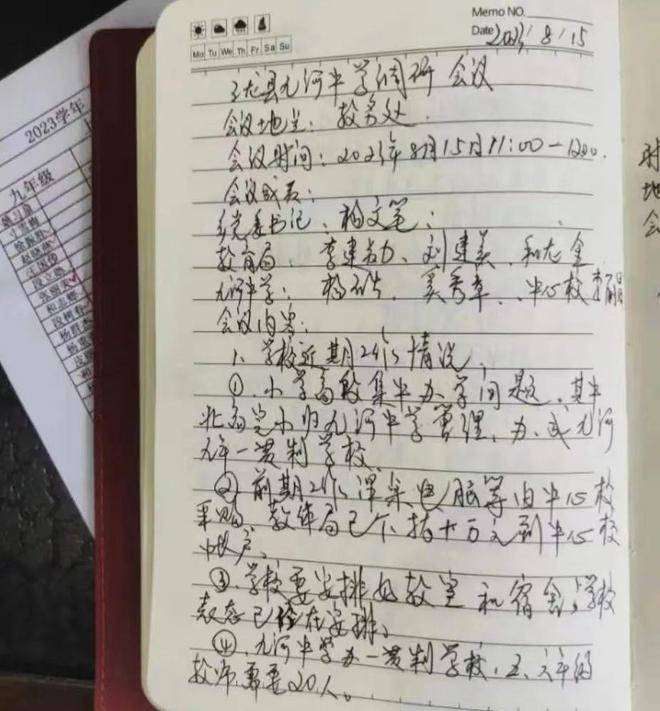 Memo NO.
Date 2023/8/15
Mo Tu We Th Fr Sa Su
玉龙县九河中学调研会议
会议地点：教务处.
会议时间：2023年8月15日11:00-1200.
会议成员：
乡党委书记：杨文笔；
教育局、李建、刘建美、和龙金
九河中学：杨、奚秀华、中心校
会议内容：
1、学校近期工作情况，
①、小学高段集中办学问题、其中
北完小归九河中学管理、办成九河
九年一贯制学校、
② 前期工作课桌电脑等由中心校
采购、教体局已下拨十万元到中心校
中账户。
③、学校要安排好教室和宿舍，学校
表态已经在安排。
④、九河中学办一贯制学校，五、六年的
教师需要20人。
2023学年
九年级
时
地
会